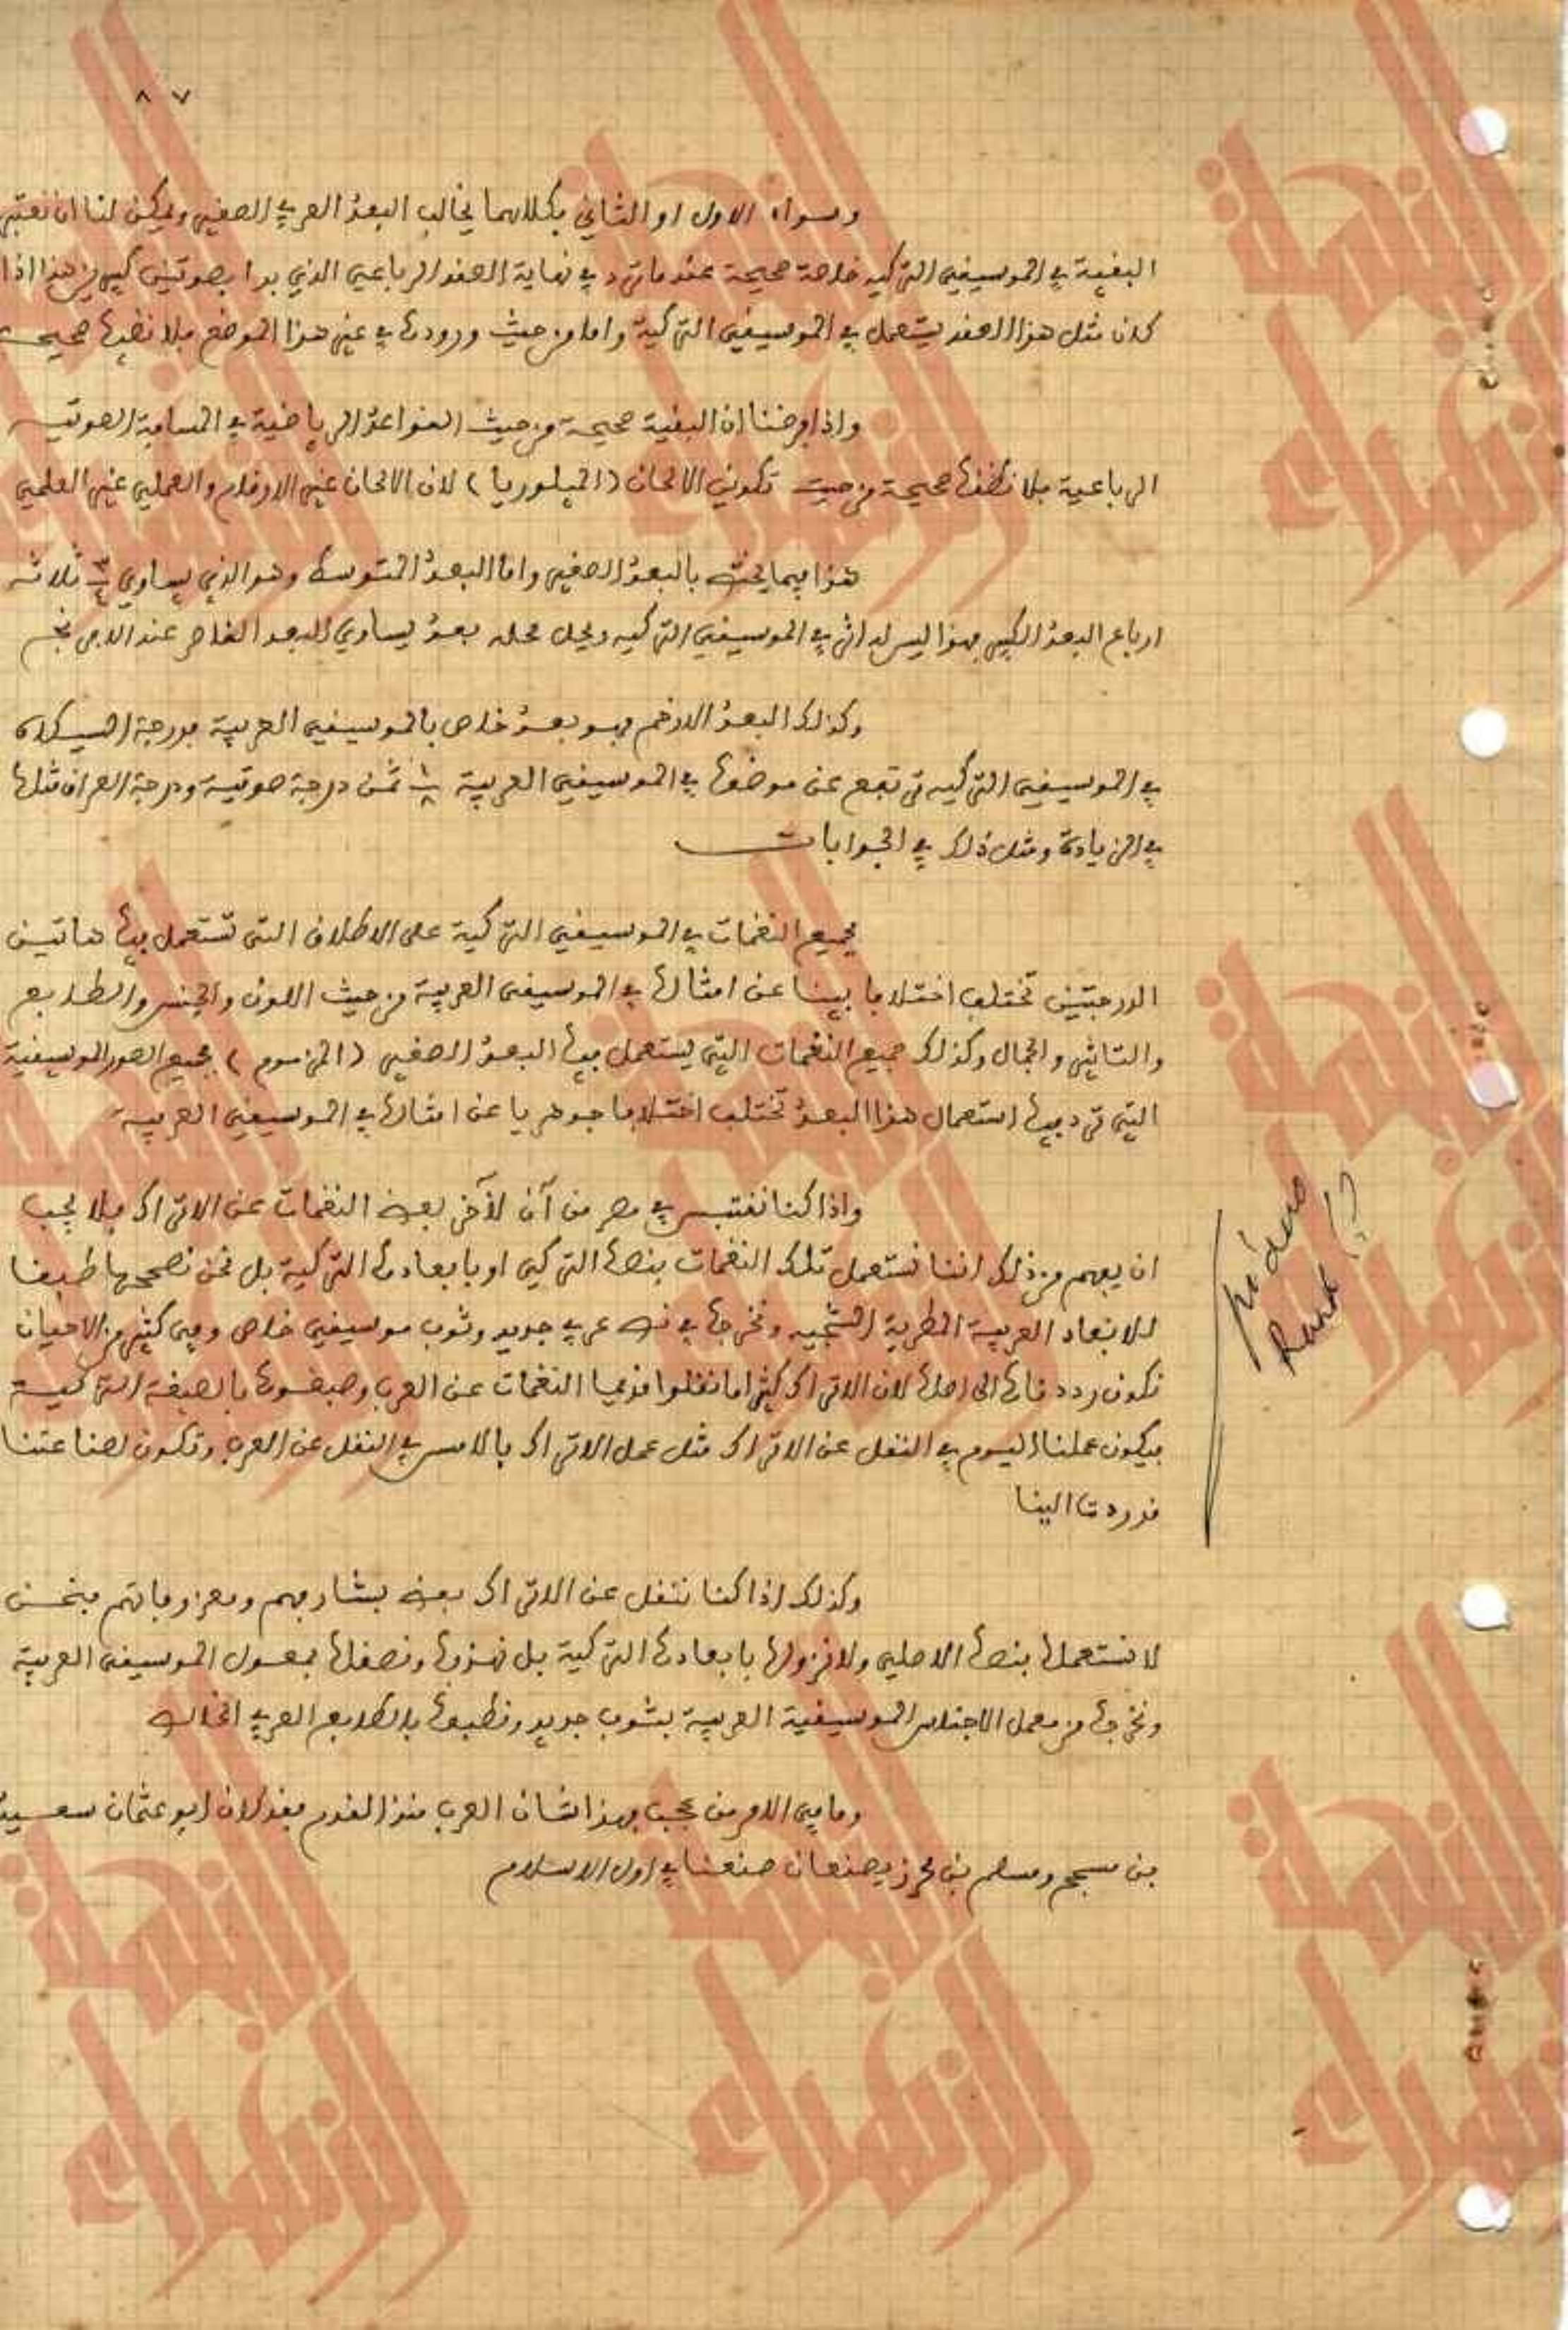 ٨٧
وسواء الاول او الثاني فكلاهما يخالف البعد العربي الصغير ويمكن لنا ان نعتبر
البقية في الموسيقى التركيه خاصة صحيحة عندما ترد في نهاية العقد الرباعي الذي بدا بصوتين كبيرين هذا اذا
كان مثل هذا العقد يستعمل في الموسيقى التركية واما من حيث ورودها في غير هذا الموضع فلا نظنها صحيحة
واذا فرضنا ان البقية صحيحة من حيث القواعد الرياضية في المسافة الصوتيه
الرباعية فلا نظنها صحيحة من حيث تكوين الالحان (الميلوديا) لان الالحان غير الارقام والعملي غير العلمي
هذا فيما يختص بالبعد الصغير واما البعد المتوسط وهو الذي يساوي ٣/٤ ثلاثه
ارباع البعد الكبير فهذا ليس له اثر في الموسيقى التركيه ويحل محله بعد يساوي البعد الناقص عند الافرنج
وكذلك البعد الارخم فهو بعد خاص بالموسيقى العربية فدرجة السيكاه
في الموسيقى التركيه ترتفع عن موضعها في الموسيقى العربية ١/٨ ثمن درجة صوتية ودرجة العراق مثلها
في الزيادة ومثل ذلك في الجوابات
فجميع النغمات في الموسيقى التركية على الاطلاق التى تستعمل فيها هاتين
الدرجتين تختلف اختلافا بينا عن امثالها في الموسيقى العربية من حيث اللون والجنس والطابع
والتاثير والجمال وكذلك جميع النغمات التي يستعمل فيها البعد الصغير (المزموم) فجميع الصور الموسيقية
التي ترد فيها استعمال هذا البعد تختلف اختلافا جوهريا عن امثالها في الموسيقى العربية
واذا كنا نقتبس في مصر من آن لآخر بعض النغمات عن الاتراك فلا يجب
ان يفهم من ذلك اننا نستعمل تلك النغمات بنصها التركي او بابعادها التركية بل نحن نصححها طبقا
للابعاد العربية المطربة الشجيه ونخرجها في نص عربي جديد وثوب موسيقى خاص وفي كثير من الاحيان
نكون رددناها الى اصلها لان الاتراك كثيرا ما نقلوا قديما النغمات عن العرب وصبغوها بالصبغة التركيه
فيكون عملنا اليوم في النقل عن الاتراك مثل عمل الاتراك بالامس في النقل عن العرب وتكون بضاعتنا
قد ردت الينا
وكذلك اذا كنا ننقل عن الاتراك بعض بشارفهم ومعزوفاتهم فنحن
لا نستعملها بنصها الاصلي ولا نزولها بابعادها التركية بل نهذبها ونصقلها بمعول الموسيقى العربية
ونخرجها من معمل الاجناس الموسيقية العربية بثوب جديد ونطبعها بالطابع العربي الخالص
وما في الامر من عجب فهذا شان العرب منذ القدم فقد كان ابو عثمان سعيد
بن مسجح ومسلم بن محرز يصنعان صنعنا في اول الاسلام